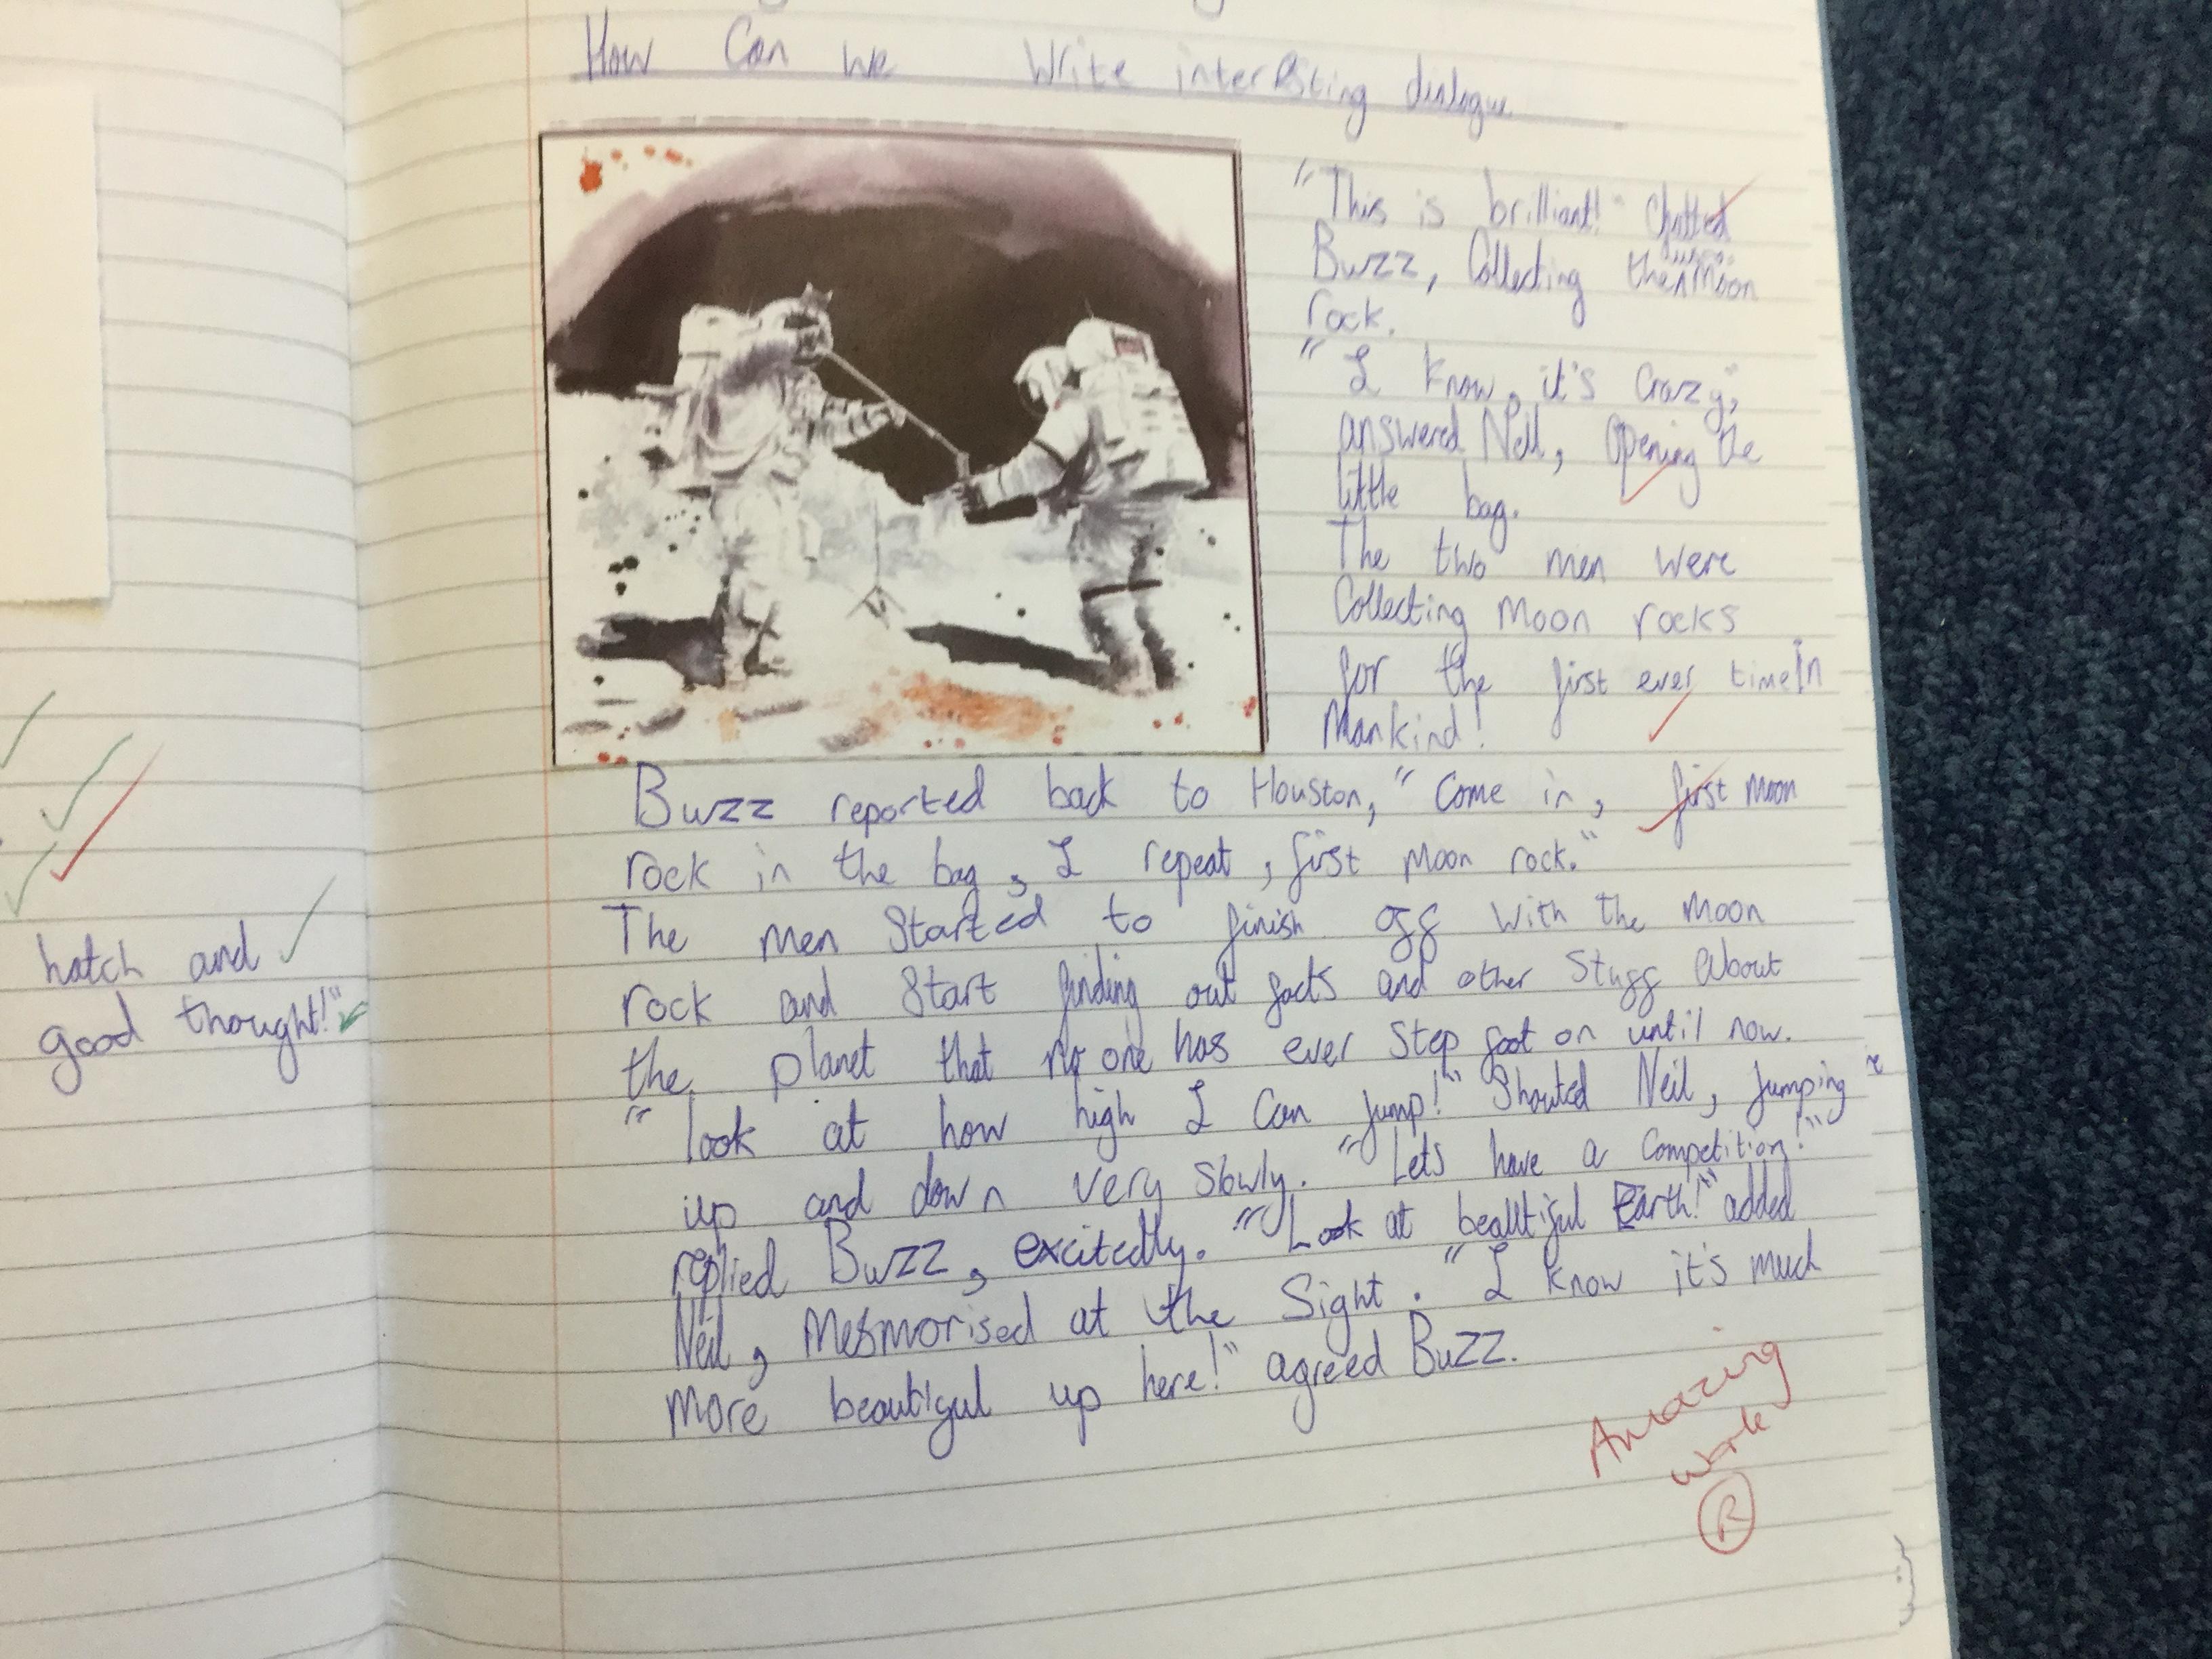 How Can we Write interesting dialogue
"This is brilliant!" Chatted
Buzz, Collecting the Moon
rock.
"I know, it's Crazy,"
answered Neil, Opening the
little bag.
The two men were
Collecting Moon rocks
for the first ever time In
Mankind!
Buzz reported back to Houston, "Come in, first Moon
rock in the bag, I repeat, first Moon rock."
The men Started to finish off With the Moon
rock and Start finding out facts and other Stuff About
the planet that no one has ever Step foot on until now.
"look at how high I Can Jump!" Shouted Neil, Jumping
up and down very Slowly. "Lets have a Competition!"
replied Buzz, excitedly. "Look at beautiful Earth!" added
Neil, Mesmorised at the Sight. "I know it's much
More beautiful up here!" agreed Buzz.
Amazing
work
R
hatch and
good thought!"